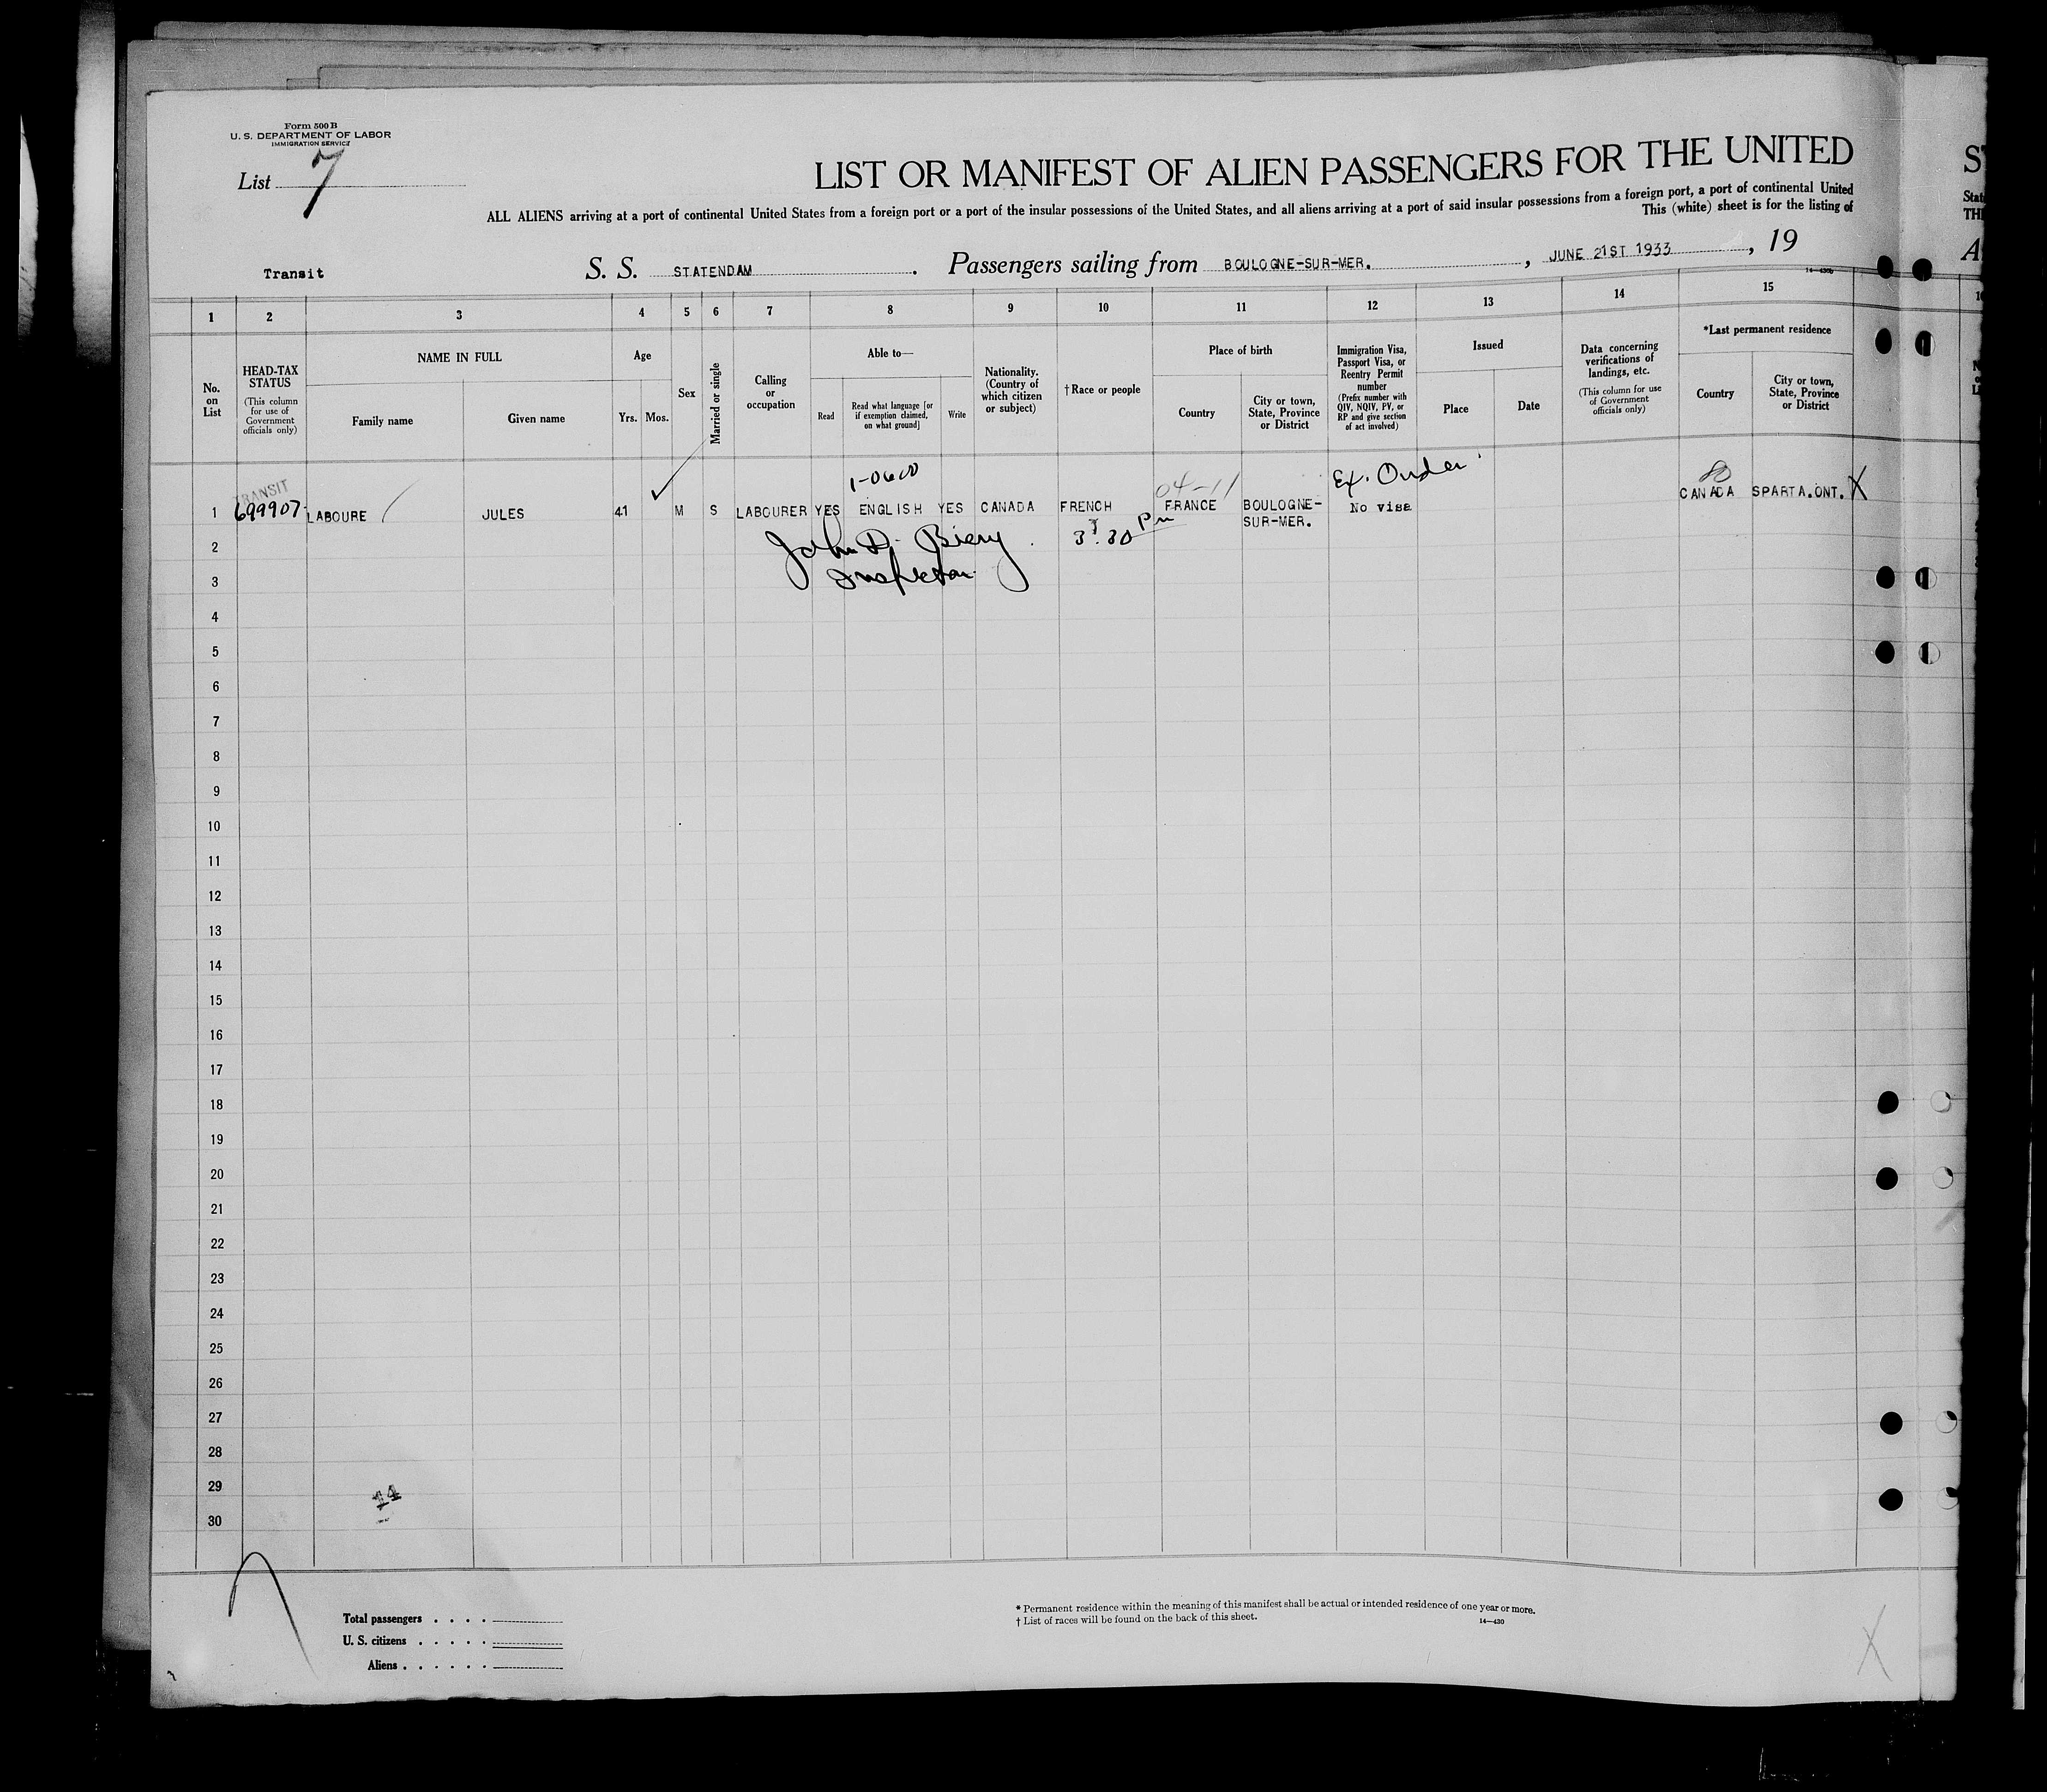 Form 500 B
U. S. DEPARTMENT OF LABOR
IMMIGRATION SERVICE
List 7
LIST OR MANIFEST OF ALIEN PASSENGERS FOR THE UNITED
ALL ALIENS arriving at a port of continental United States from a foreign port or a port of the insular possessions of the United States, and all aliens arriving at a port of said insular possessions from a foreign port, a port of continental United
This (white) sheet is for the listing of
Transit S. S. STATENDAM . Passengers sailing from BOULOGNE-SUR-MER. , JUNE 21ST 1933 , 19
1 2 3 4 5 6 7 8 9 10 11 12 13 14 15
No. on List
HEAD-TAX STATUS
(This column for use of Government officials only)
NAME IN FULL
Family name Given name
Age
Yrs. Mos.
Sex
Married or single
Calling or occupation
Able to—
Read
Read what language [or if exemption claimed, on what ground]
Write
Nationality. (Country of which citizen or subject)
† Race or people
Place of birth
Country
City or town, State, Province or District
Immigration Visa, Passport Visa, or Reentry Permit number
(Prefix number with QIV, NQIV, PV, or RP and give section of act involved)
Issued
Place Date
Data concerning verifications of landings, etc.
(This column for use of Government officials only)
*Last permanent residence
Country
City or town, State, Province or District
TRANSIT 04-11 Ex. Order
1 699907 LABOURE JULES 41 M S LABOURER YES ENGLISH YES CANADA FRENCH FRANCE BOULOGNE-SUR-MER. No visa CANADA SPARTA.ONT. X
2 John D. Biery 3.30 Pm
3 Inspector
4
5
6
7
8
9
10
11
12
13
14
15
16
17
18
19
20
21
22
23
24
25
26
27
28
29
30
14
Total passengers . . . .
U. S. citizens . . . . .
Aliens . . . . . .
* Permanent residence within the meaning of this manifest shall be actual or intended residence of one year or more.
† List of races will be found on the back of this sheet.
14—430
X